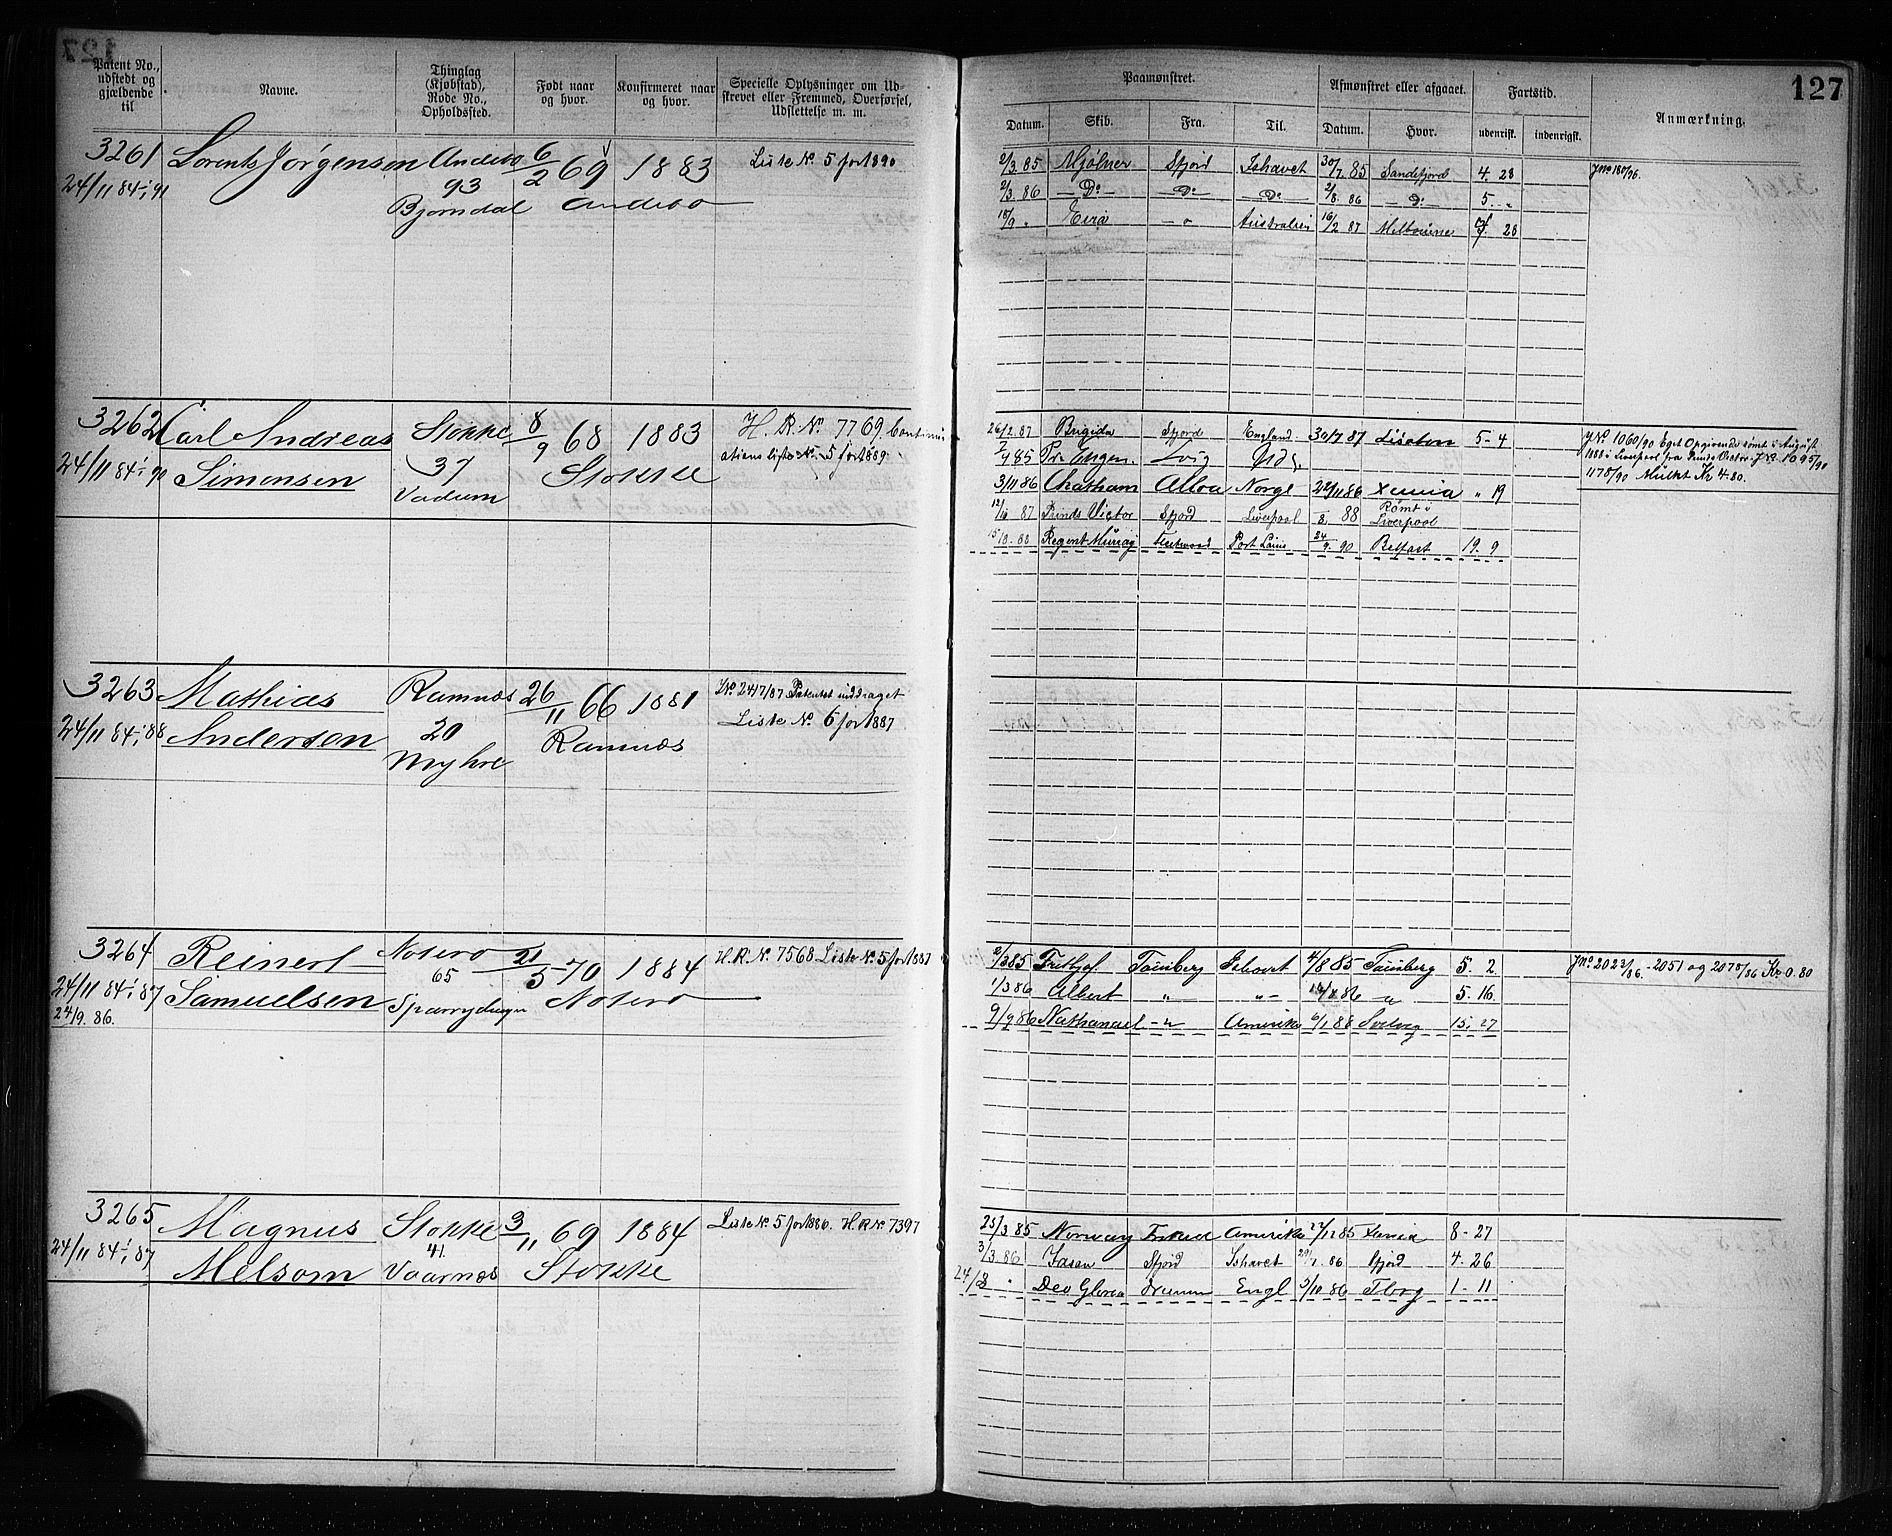 127
Patent No., udstedt og gjældende til
Navne.
Thinglag (Kjøbstad), Rode No., Opholdssted.
Født naar og hvor.
Konfirmeret naar og hvor.
Specielle Oplysninger om Udskrevet eller Fremmed, Overførsel, Udslettelse m. m.
Paamønstret.
Afmønstret eller afgaaet.
Fartstid.
Anmærkning.
Datum. Skib. Fra. Til. Datum. Hvor. udenrigsk. indenrigsk.
3261 Lorents Jørgensen Andebo 6/2 69 1883 Liste No. 5 for 1890
24/11 84 1/1 91 93 Andebo
Bjørndal
2/3.85 Mjølner Sfjord Ishavet 30/7 85 Sandefjord 4. 28 Jno 180/96.
2/3. 86 — Do — Do — Do 2/8. 86 — Do 5. "
18/9 " Eira — " Australien 16/2 87 Melbourne 28
3262 Carl Andreas Stokke 8/9 68 1883 H. R. No. 7769. Continu
24/11 84 1/1 90 Simonsen 37 Stokke ationsliste No. 5 for 1889
Vadum
26/2. 87 Brigida Sfjord England 30/7 87 Lisabon 5- 4 JNo 1060/90 Eget Opgivende rømt i August
85 Lvig 1888 i Liverpool fra Prinds Victor JNo 1095/90
3/11 86 Chatham Alloa Norge 22/11 86 Xania " 19 1178/90 Mulkt Kr 4.80.
12/10 87 Prinds Victor Sfjord Liverpool 8. 88 Rømt i Liverpool
15/8. 88 Regent Murray Fleetwood Port Pirie 24/9. 90 Belfast 19. 9
3263 Mathias Ramnæs 26/11 66 1881 JNo 2417/87 Patentet inddraget
24/11 84 1/1 88 Andersen 20 Ramnæs Liste No. 6 for 1887
Myhre
3264 Reinert Noterø 21/5 70 1884 H. R. No. 7568 Liste No. 5 for 1887
24/11 84 1/1 87 Samuelsen 65 Noterø
24/9. 86.
2/3 85 Fritjof Tønsberg Ishavet 4/8 85 Tønsberg 5. 2 Jno 2023/86. - 2051 og 2075/86 Kr 0.80
1/3 86 Albert " " - 86 " 5. 16.
9/9 86 Nathanael - " Amerika 6/1 88 Svelvig 15. 27
3265 Magnus Stokke 3/11 69 1884 Liste No. 5 for 1886. H. R No. 7397
24/11 84 1/1 87 Melsom 41. Stokke
Vaarnæs
25/3 85 Norway Amerika 27/11 85 Xania 8 - 27
3/3. 86 Jasen Sfjord Ishavet 29/7. 86 Sfjord 4. 26
24/8 " Deo Gloria Engl 5/10 86 Tbrg 1 - 11